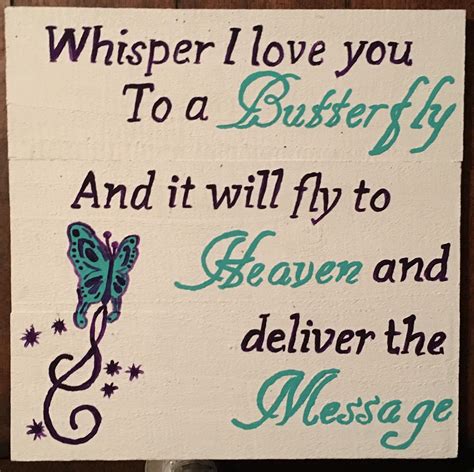 Whisper I love you
To a Butterfly
And it will fly to
Heaven and
deliver the
Message